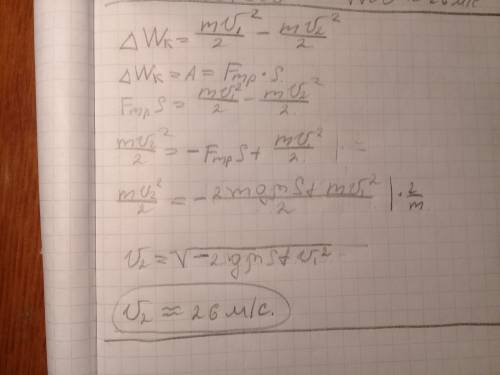 ΔWк = mv₁²/2 − mv₂²/2
ΔWк = A = Fтр · S.
FтрS = mv₁²/2 − mv₂²/2
mv₂²/2 = −FтрS + mv₁²/2 |
mv₂²/2 = −2mgμS + mv₁²/2 | · 2/m
v₂ = √−2gμS + v₁²
v₂ ≈ 26 м/с.